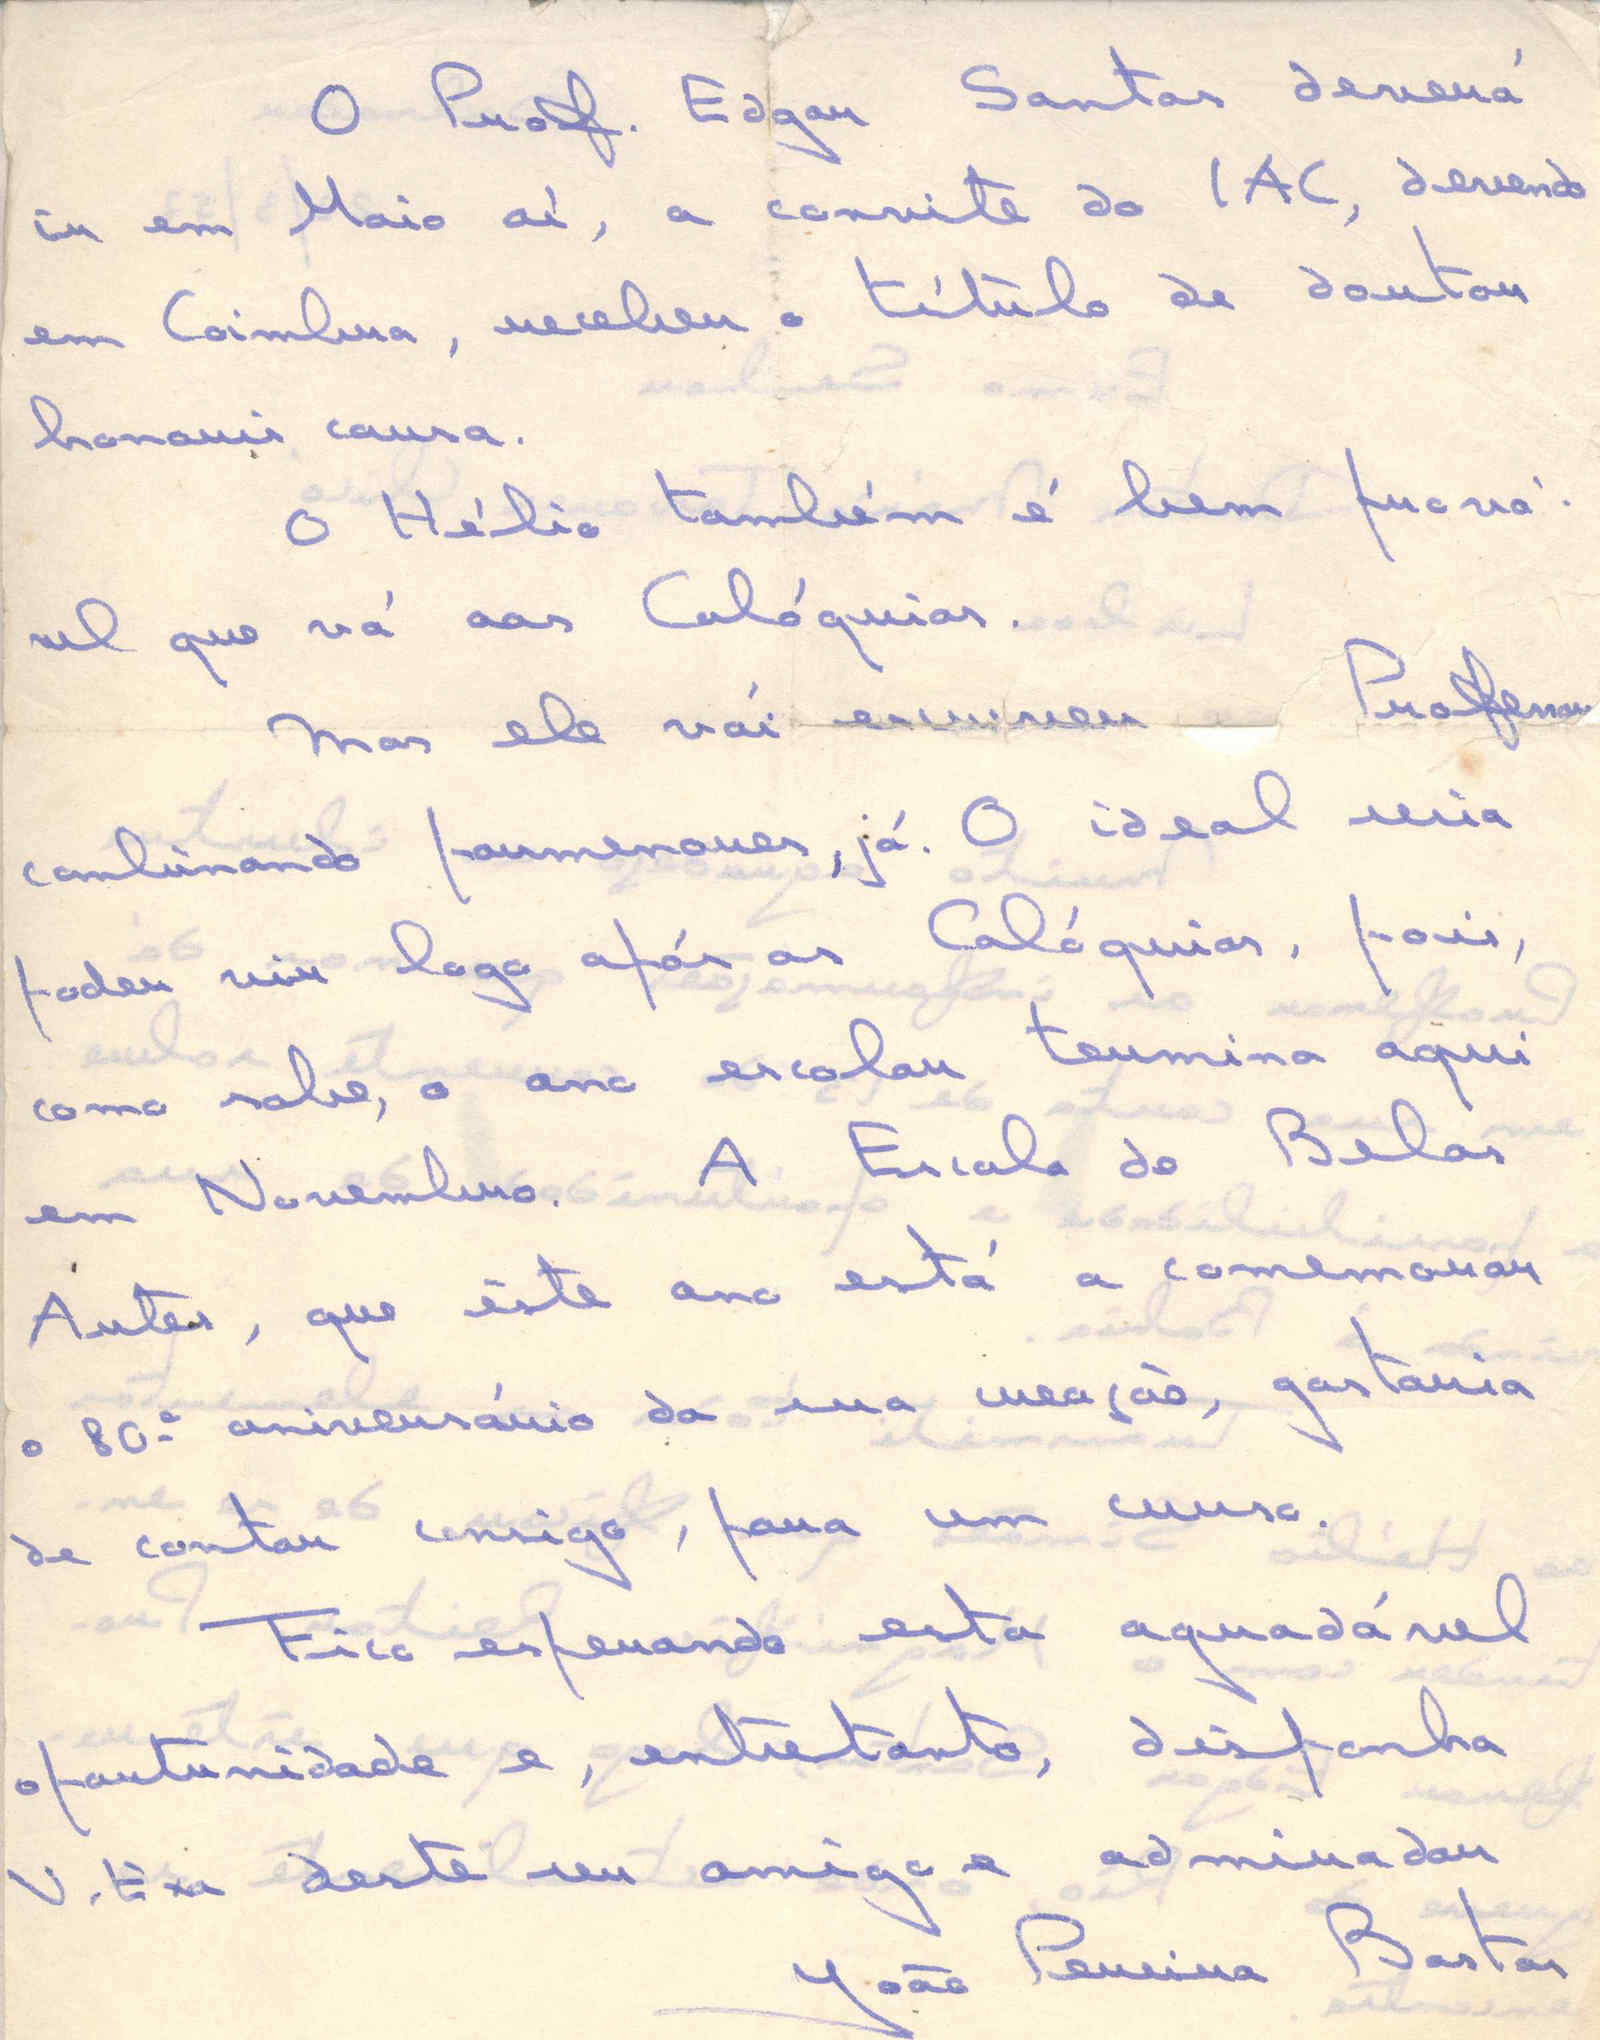 O Prof. Edgar Santos deverá
ir em Maio aí, a convite do IAC, devendo
em Coimbra, receber o título de doutor
honouris causa.
O Hélio também é bem prová-
vel que vá aos Colóquios.
Mas ele vai escrever Professor
combinando pormenores, já. O ideal seria
poder vir logo após os Colóquios, pois,
como sabe, o ano escolar termina aqui
em Novembro. A Escola de Belas
Artes, que êste ano está a comemorar
o 80º aniversário da sua creação, gostaria
de contar consigo, para um curso.
Fico esperando esta agradável
oportunidade e, entretanto, disponha
V. Exa deste seu amigo e admirador
João Pereira Bastos